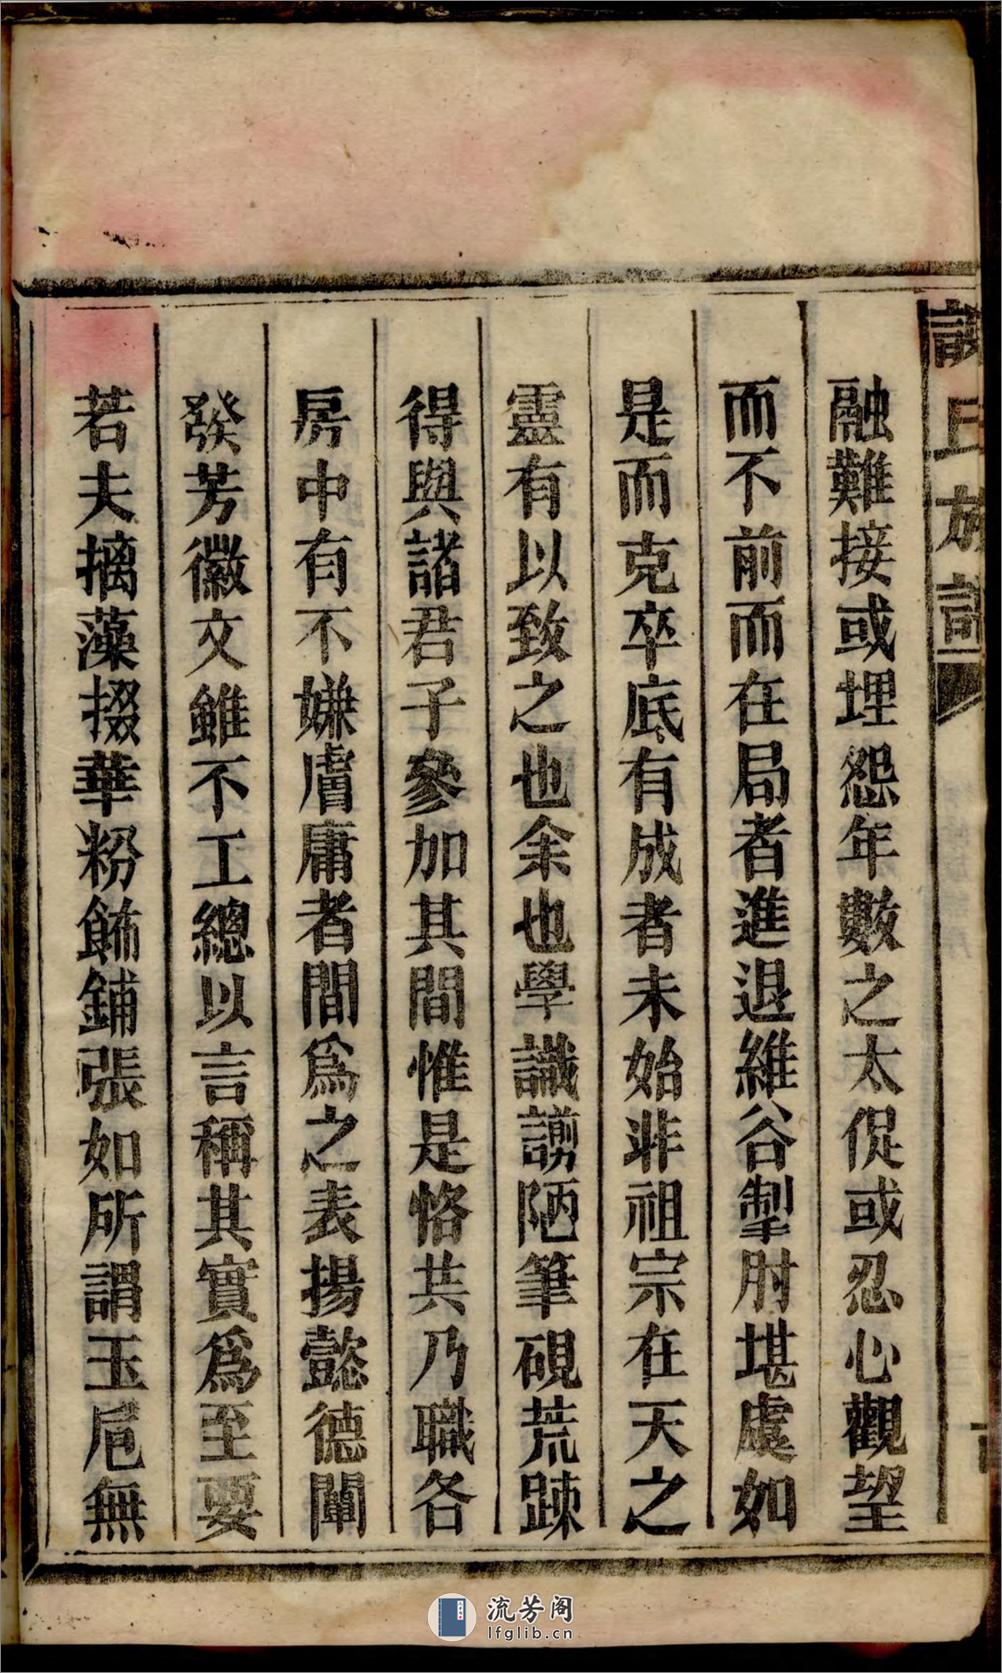 氏族譜
融難接或埋怨年數之太促或忍心觀望
而不前而在局者進退維谷掣肘堪虞如
是而克卒底有成者未始非祖宗在天之
靈有以致之也余也學識謭陋筆硯荒踈
得與諸君子參加其間惟是恪共乃職各
房中有不嫌膚庸者間爲之表揚懿德闡
發芳徽文雖不工總以言稱其實爲至要
若夫摛藻掇華粉飾鋪張如所謂玉卮無
流芳阁
lfglib.cn